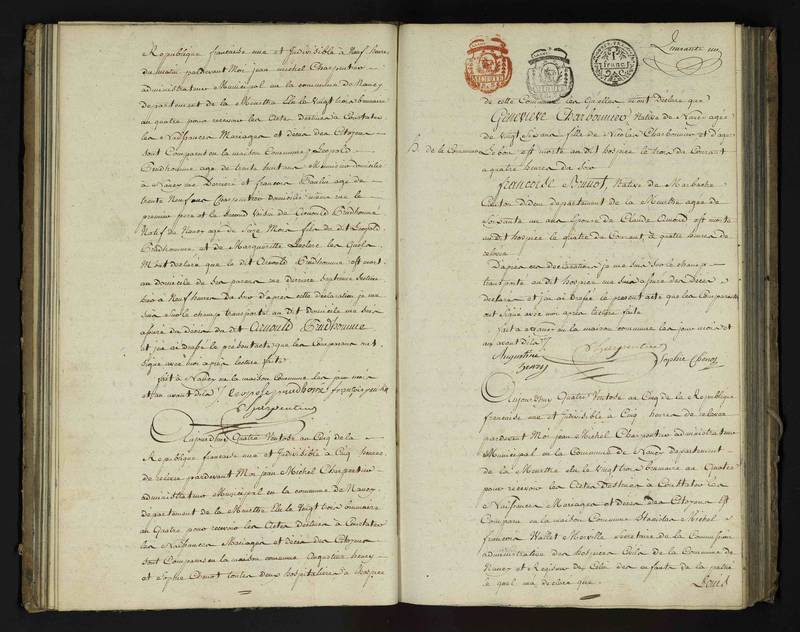 République française une et Indivisible à Neuf heures
du matin pardevant Moi jean michel Charpentier
administrateur Municipal en la commune de Nancy
departement de la Meurthe Elu le Vingt trois brumaire
an quatre pour recevoir les Actes destinés à Constater
les Naissances Mariages et décès des Citoyens
sont Comparu en la maison Commune Leopold
Prudhomme age de trente huit ans Menuisier domicilié
a Nancy rue Derriere et francois Paulin age de
trente Neuf ans Charpentier Domicilié même rue le
premier pere et le Second Voisin de Arnould Prudhomme
Natif de Nancy age de Seize Mois fils du dit Leopold
Prudhomme et de Margueritte Leclerc les quels
M'ont declaré que le dit Arnould Prudhomme est mort
au domicile de Ses parens rue Derriere Septieme Section
hier à Neuf heures du Soir d'après cette déclaration je me
suis Sur le champ transporté au dit Domicile me suis
assuré du Décès du dit Arnould Prudhomme
et j'ai dressé le présent acte que les Comparans ont
Signé avec moi après lecture faite
fait à Nancy en la maison Commune les jour mois
et an avant dits leopolse prudhomé françois paulin
Charpentier
Aujourd'hui Quatre Ventose an Cinq de la
République française une et Indivisible à Cinq heures
de relevée pardevant Moi jean Michel Charpentier
administrateur Municipal en la commune de Nancy
département de la Meurthe Elu le Vingt trois brumaire
an Quatre pour recevoir les Actes destinés à Constater
les Naissances Mariages et décès des Citoyens
sont Comparu en la maison commune Augustine henry
et Sophie Chenot toutes deux hospitalières à l'hospice
quarante un
1 franc
de cette Commune les Quelles m'ont déclaré que
Genevieve Charbonnier Native de Nancy agée
de Vingt Six ans fille de Nicolas Charbonnier et d'
H. de la Commune
Lebon est morte au dit hospice le trois du Courant
a quatre heures du Soir
francoise Native de Marbache
Canton Dudeu departement de la Meurthe agée de
Soixante un ans Epouse de Claude est morte
au dit hospice le quatre du Courant, à quatre heures de
relevée
D'apres ces déclarations je me suis Sur le champ
transporté au dit hospice me suis assuré des Décès
déclarés et j'ai dressé le present acte que les Comparantes
ont Signé avec moi après lecture faite
fait a Nancy en la maison commune les jour mois et
an avant dits
Augustine henry Charpentier Sophie Chenot
Aujourd'huy Quatre Ventose an Cinq de la République
française une et Indivisible à Cinq heures de relevée
pardevant Moi jean Michel Charpentier administrateur
Municipal en la Commune de Nancy departement
de la Meurthe elu le Vingt trois brumaire an Quatre
pour recevoir les Actes Destinés à Constater les
Naissances Mariages et décès des Citoyens Est
Comparu en la maison Commune Stanislas Michel
francois Vallet Merville Secretaire de la Commission
administrative des hospices Civils de la Commune de
Nancy et Regisseur de Celui des enfants de la patrie
le quel m'a déclaré que
Louis